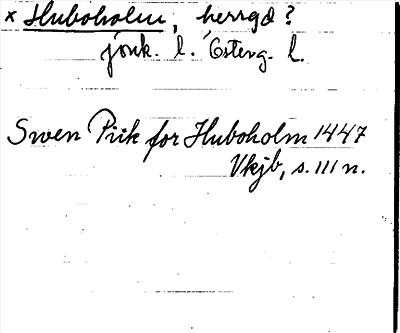 × Huboholm, herrgd?
jönk. l. Österg. l.
Swen Piik for Huboholm 1447
Vkjb, s. 111 n.